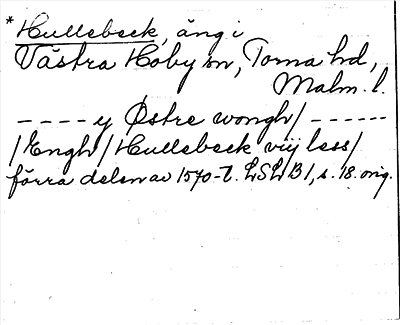 *Hullebeck, äng i
Västra Hoby sn, Torna hd,
Malm. l.
---- y Østre wongh/ ------
/Engh/ Hullebeck vij less/
förra delen av 1570-t. LSLB1, s. 18. orig.